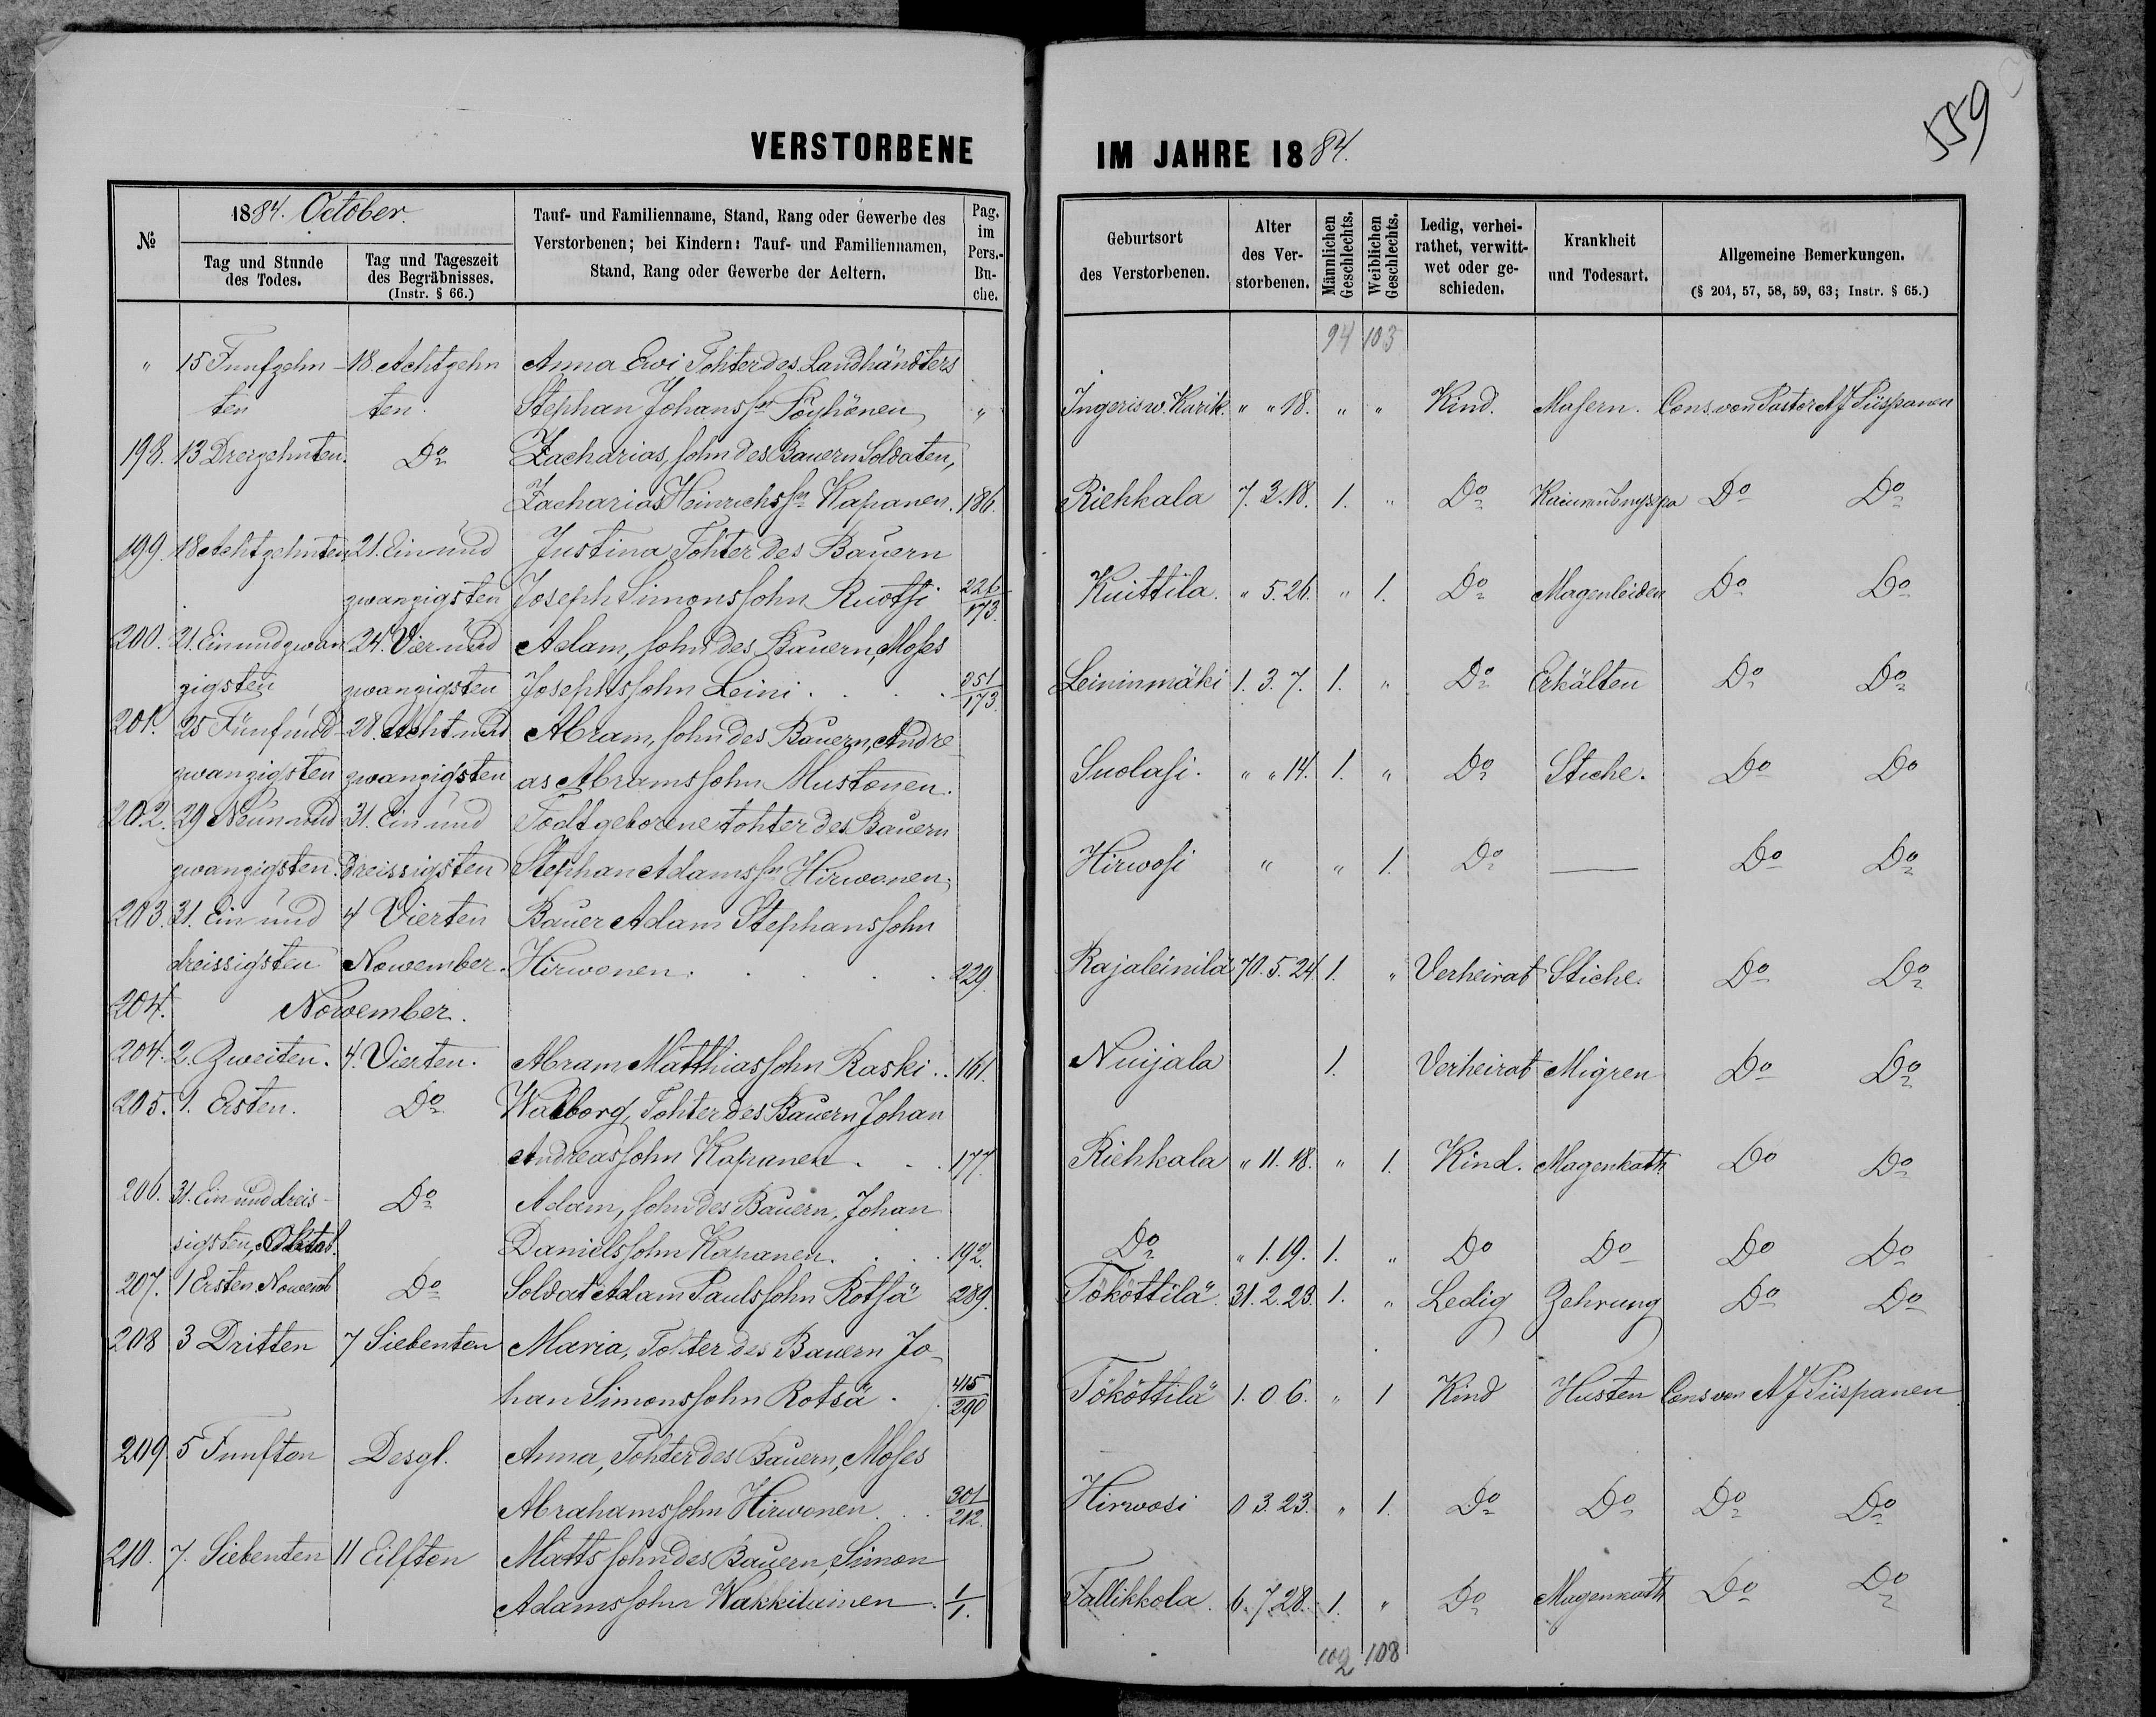 559
VERSTORBENE IM JAHRE 1884.
№
1884. October.
Tag und Stunde des Todes.
Tag und Tageszeit des Begräbnisses. (Instr. § 66.)
Tauf- und Familienname, Stand, Rang oder Gewerbe des Verstorbenen; bei Kindern: Tauf- und Familiennamen, Stand, Rang oder Gewerbe der Aeltern.
Pag. im Pers.-Buche.
Geburtsort des Verstorbenen.
Alter des Verstorbenen.
Männlichen Geschlechts.
Weiblichen Geschlechts.
Ledig, verheirathet, verwittwet oder geschieden.
Krankheit und Todesart.
Allgemeine Bemerkungen. (§ 204, 57, 58, 59, 63; Instr. § 65.)
94 103
" 15 Funfzehn- 18. Achtzehn Anna Ewi Tohter des Landhändlers
ten ten. Stephan Johanssn Pöyhönen " Ingerisw. Karik. " " 18. " " Kind. Masern. Cons. von Pastor A J Piispanen
198. 13 Dreizehnten. Do Zacharias, sohn des Bauern Soldaten,
Zacharias Heinrichssn Kapanen. 186. Riehkala 7. 3. 18. 1. " Do Do Do
199. 18 Achtzehnten 21. Ein und Justina Tohter des Bauern
zwanzigsten Joseph Simonssohn Ruotsi 226/173. Kuittila. " 5. 26. " 1. Do Magenleiden Do Do
200. 21. Einundzwan 24. Vier und Adam, sohn des Bauern, Moses
zigsten zwanzigsten Josephssohn Leini . . . . 351/173. Leininmäki 1. 3. 7. 1. " Do Erkälten Do Do
201. 25 Fünfund- 28. Acht und Abram, sohn des Bauern, Andre
zwanzigsten zwanzigsten as Abramssohn Mustonen. Suolasi. " " 14. 1. " Do Stiche. Do Do
202. 29 Neun und 31. Ein und Todtgeborene tohter des Bauern
zwanzigsten. dreissigsten Stephan Adamssn Hirwonen. Hirwosi " " 1. Do — Do Do
203. 31. Ein und 4 Vierten Bauer Adam Stephanssohn
dreissigsten Nowember. Hirwonen. . . . . 229. Rajaleinilä 70. 5. 24. 1. " Verheirat Stiche. Do Do
204. Nowember.
204. 2. Zweiten. 4. Vierten. Abram Matthiassohn Raski. . 161. Nuijala 1. Verheirat Migren Do Do
205. 1. Ersten. Do Walborg, Tohter des Bauern Johan
Andreassohn Kapanen . . . 177. Riehkala " 11. 18. " 1. Kind. Magenkath Do Do
206. 31. Ein und dreis- Do Adam, sohn des Bauern, Johan
sigsten, Oktob. Danielssohn Kapanen. . . 192. Do " 1. 19. 1. " Do Do Do Do
207. 1 Ersten Nowemb Do Soldat Adam Paulssohn Rötsä 289. Tököttilä. 31. 2. 23. 1. " Ledig Zehrung Do Do
208 3 Dritten 7 Siebenten Maria, Tohter des Bauern Jo-
han Simonssohn Rotsä . . 415/290 Tököttilä 1. 0 6. " 1 Kind Husten Cons von A J Piispanen
209 5 Funften Desgl. Anna, Tohter des Bauern, Moses
Abrahamssohn Hirwonen. . . 301/212. Hirwosi 0 3. 23. " 1. Do Do Do Do
210. 7. Siebenten 11 Eilften Matts sohn des Bauern, Simon
Adamssohn Wakkilainen. 1/1. Tallikkola. 6. 7 28. 1. " Do Magenkath Do Do
102 108